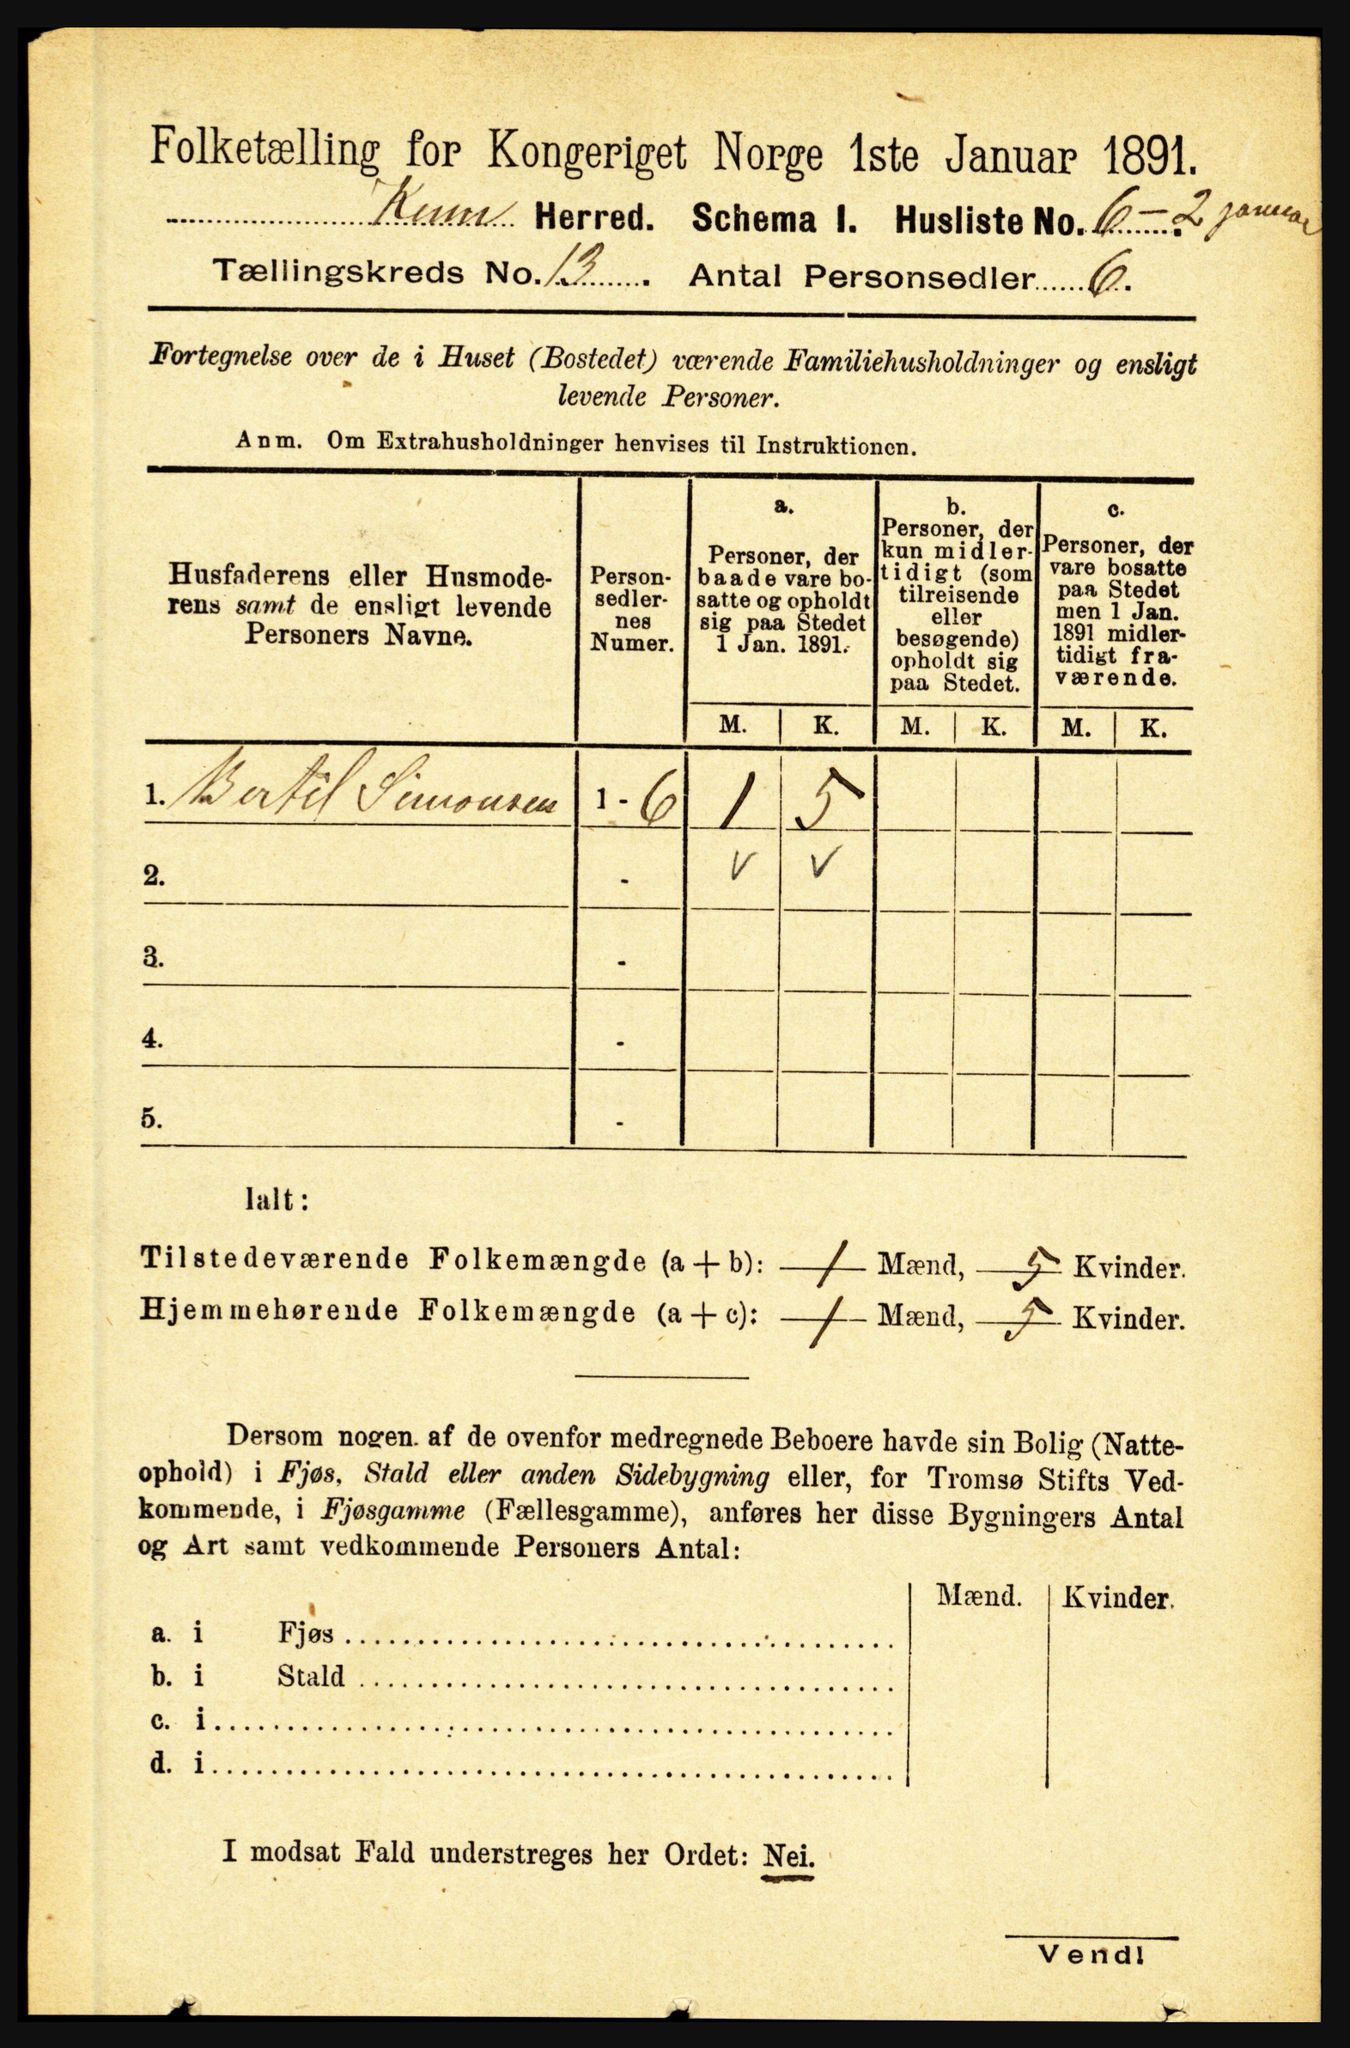 Folketælling for Kongeriget Norge 1ste Januar 1891.
Kinn Herred. Schema I. Husliste No. 6 - 2 januar
Tællingskreds No. 13. Antal Personsedler 6.
Fortegnelse over de i Huset (Bostedet) værende Familiehusholdninger og ensligt
levende Personer.
Anm. Om Extrahusholdninger henvises til Instruktionen.
Husfaderens eller Husmode-
rens samt de ensligt levende
Personers Navne.
Person-
sedler-
nes
Numer.
a.
Personer, der
baade vare bo-
satte og opholdt
sig paa Stedet
1 Jan. 1891.
b.
Personer, der
kun midler-
tidigt (som
tilreisende
eller
besøgende)
opholdt sig
paa Stedet.
c.
Personer, der
vare bosatte
paa Stedet
men 1 Jan.
1891 midler-
tidigt fra-
værende.
M. K. M. K. M. K.
1. Bertil Simonsen 1 - 6 1 5
2. - v v
3. -
4. -
5. -
Ialt:
Tilstedeværende Folkemængde (a + b): 1 Mænd, 5 Kvinder.
Hjemmehørende Folkemængde (a + c): 1 Mænd, 5 Kvinder.
Dersom nogen af de ovenfor medregnede Beboere havde sin Bolig (Natte-
ophold) i Fjøs, Stald eller anden Sidebygning eller, for Tromsø Stifts Ved-
kommende, i Fjøsgamme (Fællesgamme), anføres her disse Bygningers Antal
og Art samt vedkommende Personers Antal:
Mænd. Kvinder.
a. i Fjøs
b. i Stald
c. i
d. i
I modsat Fald understreges her Ordet: Nei.
Vend!